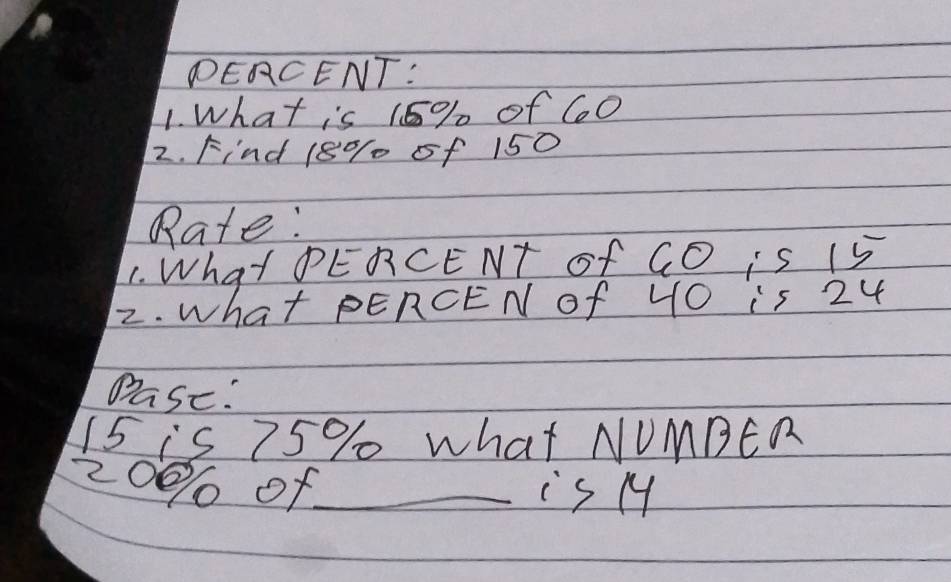 PERCENT:
1. What is 15% of 60
2. Find 18% of 150
Rate:
1. What PERCENT of 60 is 15
2. What PERCEN of 40 is 24
Base:
15 is 75% what NUMBER
20% of ______ is 14